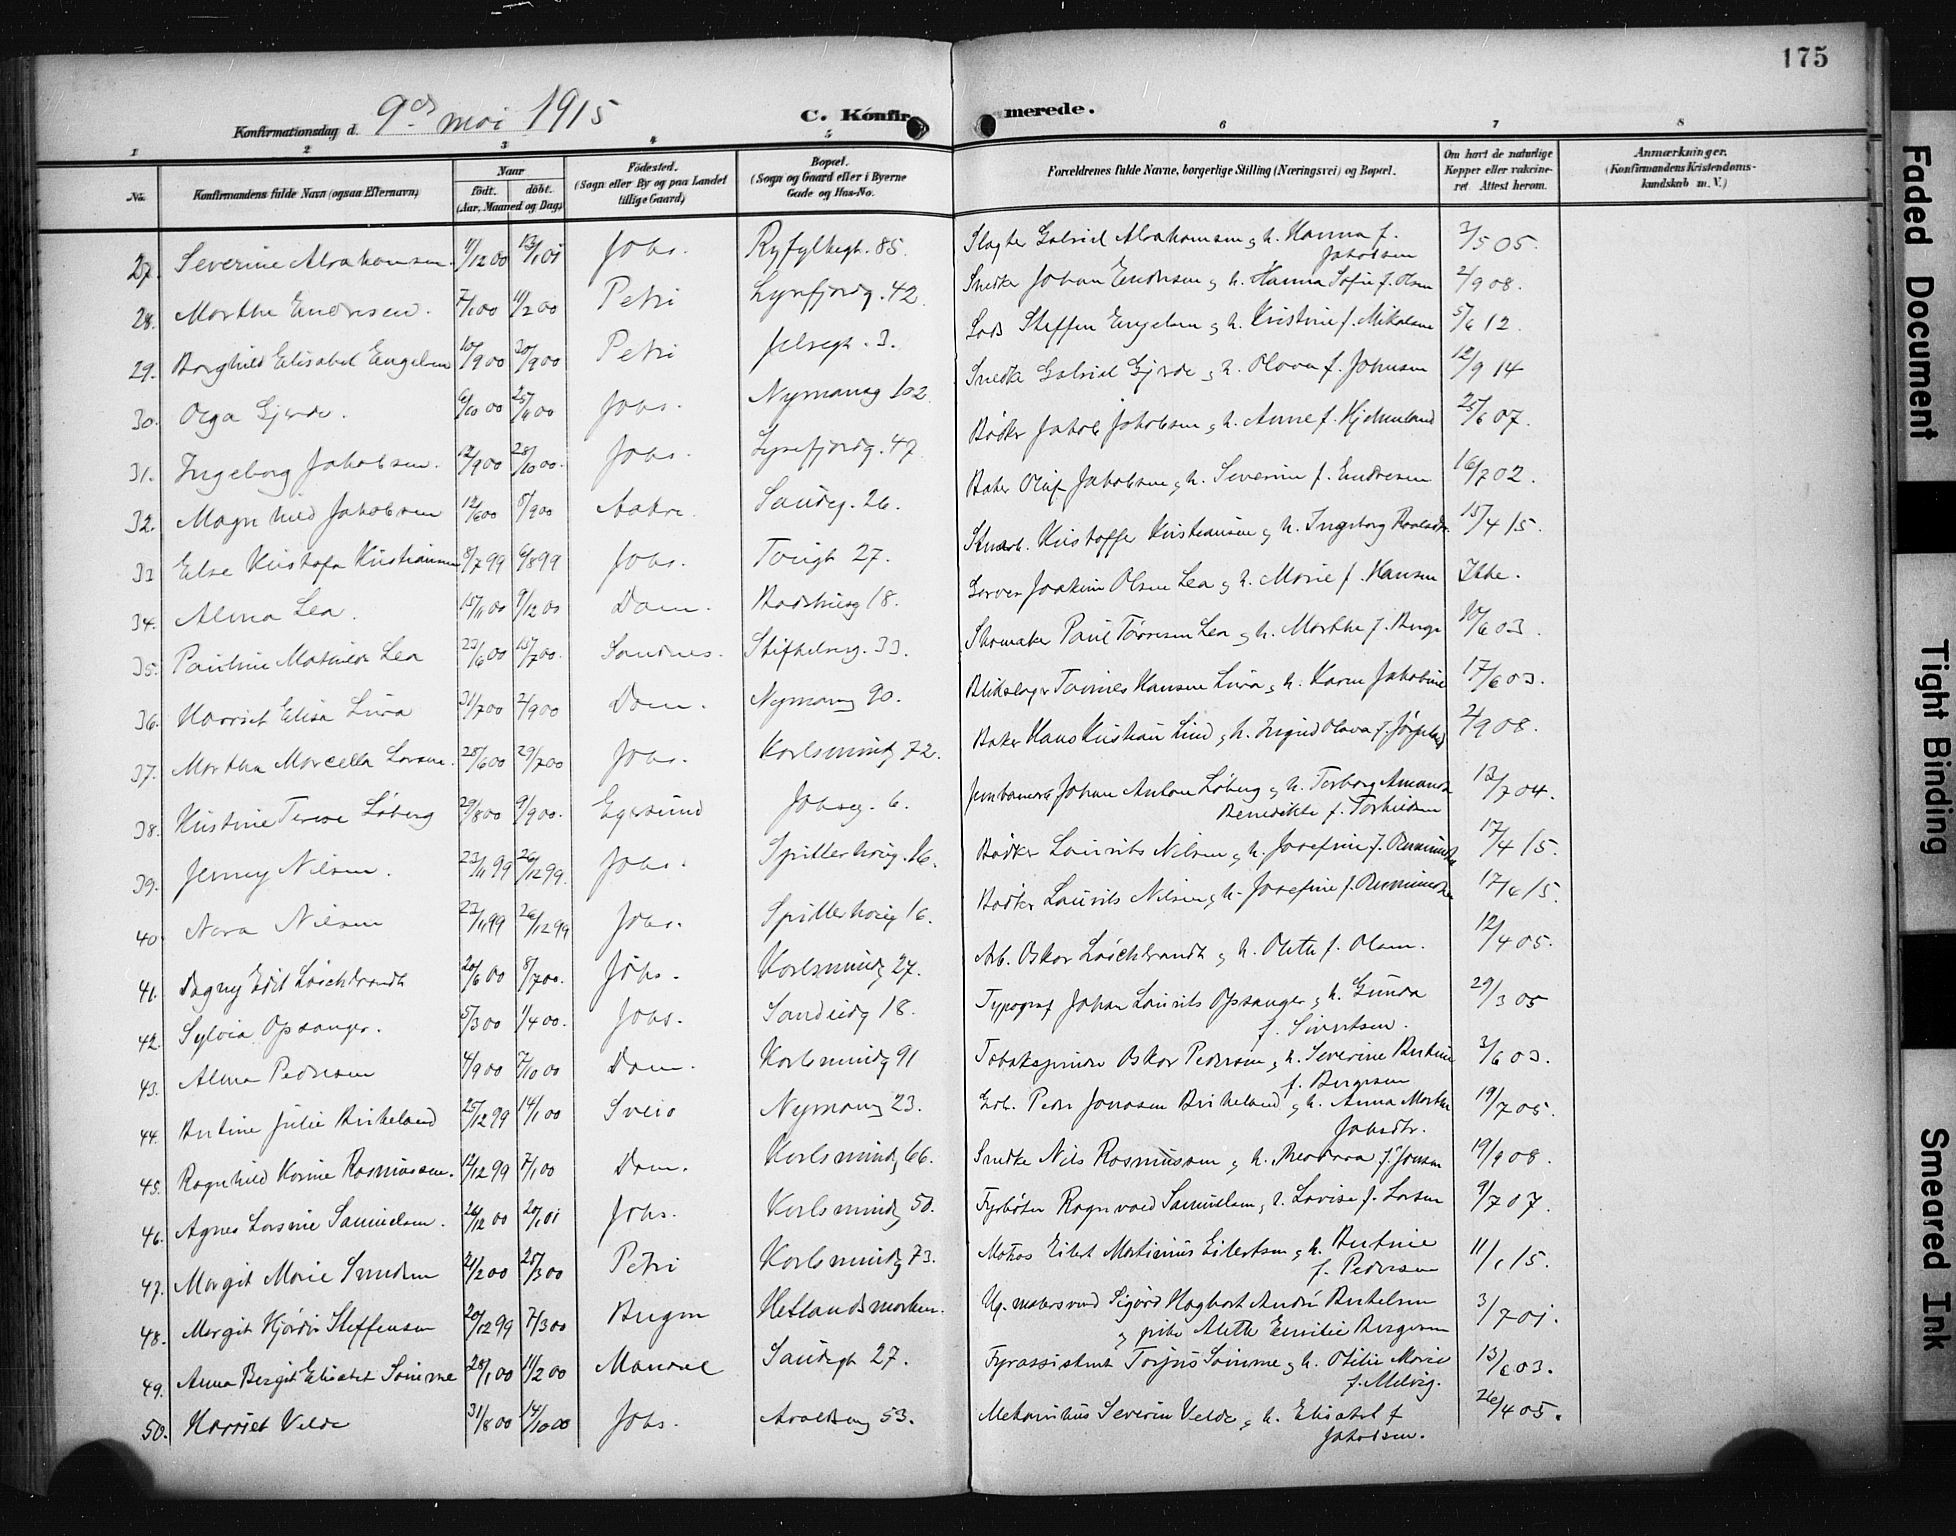 175
Konfirmationsdag d. 9de mai 1915
C. Konfirmerede.
1 2 3 4 5 6 7 8
No. Konfirmandens fulde Navn (ogsaa Efternavn) Naar født. døbt. (Aar, Maaned og Dag) Fødested. (Sogn eller By og paa Landet tillige Gaard) Bopæl. (Sogn og Gaard eller i Byerne Gade og Hus-No. Forældrenes fulde Navne, borgerlige Stilling (Næringsvei) og Bopæl. Om havt de naturlige Kopper eller vakcineret. Attest herom. Anmærkninger. (Konfirmandens Kristendomskundskab m. V.)
27. Severine Abrahamsen. 11/12 00 13/1 01 Johs. Ryfylkegt. 85. Slagter Gabriel Abrahamsen og h. Hanna f. Jakobsen 2/5 05.
28. Marthe Endresen. 7/1 00 11/2 00 Petri Lysefjordg. 42. Snedker Johan Endresen og h. Hanna Sofie f. Olsen 2/9 08.
29. Borghild Elisabet Engelsen 10/9 00 30/9 00 Petri Jelsegt. 3. Lods Steffen Engelsen og h. Kristine f. Mikalsen 5/6 12.
30. Olga Gjerde. 6/10 00 25/11 00 Johs. Nymansg 102 Snedke Gabriel Gjerde og h. Olava f. Johnsen 12/9 14
31. Ingeborg Jakobsen. 12/9 00 28/10 00. Johs. Lysefjordg. 47 Bødker Jakob Jakobsen og h. Anne f. Hjelmeland 25/6 07.
32. Magnhild Jakobsen 12/6 00 5/9 00 Aakre. Sandeg. 26. Baker Oluf Jakobsen og h. Severine f. Endresen 16/7 02.
33 Else Kristofa Kristiansen 8/7 99 6/8 99 Johs. Tougt 27. Kristoffer Kristiansen og h. Ingeborg 15/4 15.
34. Alma Lea. 15/11 00 9/12 00 Dom. Badehusg 18. Garver Joakim Olsen Lea og h. Marie f. Hansen Ikke.
35. Pauline Mathilde Lea 23/6 00 15/7 00. Sandnes. Stiftelsesg. 33. Skomaker Paul Tørresen Lea og h. Marthe f. Berge 10/6 03.
36. Harriet Elisa Lura 31/7 00 2/9 00 Dom. Nymansg 90. Blikslager Tønnes Hansen Lura og h. Karen Jakobine 17/6 03.
37. Martha Marcella Larsen. 28/6 00 29/7 00 Johs. Karlsmindeg 72. Baker Hans Kristian Lind og h. Ingrid Olava f. 2/9 08.
38. Kristine Terese Løberg 29/8 00 9/9 00. Egersund Johsg. 6. Johan Anton Løberg og h. Torborg Amanda Benedikte f. Torkildsen 13/7 04.
39. Jenny Nilsen. 23/11 99 26/12 99. Johs. Spilderhaug. 16. Bødker Laurits Nilsen og h. Josefine f. 17/4 15.
40. Nora Nilsen 23/11 99 26/12 99 Johs. Spilderhaug 16. Bødker Laurits Nilsen og h. Josefine f. 17/4 15.
41. Dagny Edit Løschbrandt 20/6 00 8/7 00. Johs. Karlsmindeg 27. Arb. Oskar Løschbrandt og h. Oleth f. Olsen. 12/4 05.
42. Sylvia Opsanger. 5/3 00 1/4 00. Johs. Sandeidg 18. Typograf Johan Laurits Opsanger og h. Gunda f. Sivertsen. 29/3 05
43. Alma Pedersen 4/9 00 7/10 00 Dom. Karlsmindeg 91 Tobakspinder Oskar Pedersen og h. Severine Bertine f. Bergesen 3/6 03.
44. Bertine Julie Birkeland 25/12 99 14/1 00 Sveio Nymansg 23. Peder Jonasen Birkeland og h. Anna Marthe Jakobdtr. 19/7 05.
45. Ragnhild Karine Rasmussen. 12/12 99 7/1 00 Dom. Karlsmindeg 66. Snedke Nils Rasmussen og h. Theodora f. Jonsen 19/9 08.
46. Agnes Lovise Samuelsen. 24/12 00 20/1 01 Johs. Karlsmindeg 50. Fyrbøter Ragnvald Samuelsen og h. Lovise f. Larsen 9/7 07.
47. Margit Marie Smedsen 21/2 00 25/3 00 Petri Karlsmindeg 73. Matros Eilert Martinius Eilertsen og h. Bertine f. Pedersen 11/1 15.
48. Margit Hjørdis Steffensen 20/12 99 7/3 00 Bergen Hetlandsmarken. Ug. matersvend Sigurd Hagbart André Bertelsen og pike Aleth Emilie Bergesen 3/7 01.
49. Anna Bergit Elisabet Sømme 28/1 00 11/2 00 Mandal Sandegt 27. Fyrassistent Torjus Sømme og h. Otilie Marie f. Melvig. 13/6 03.
50. Harriet Velde 31/8 00 14/10 00 Johs. Avaldsng 53. Mekanikus Severin Velde og h. Elisabet f Jakobsen. 26/4 05.
Faded Document
Tight Binding
Smeared Ink